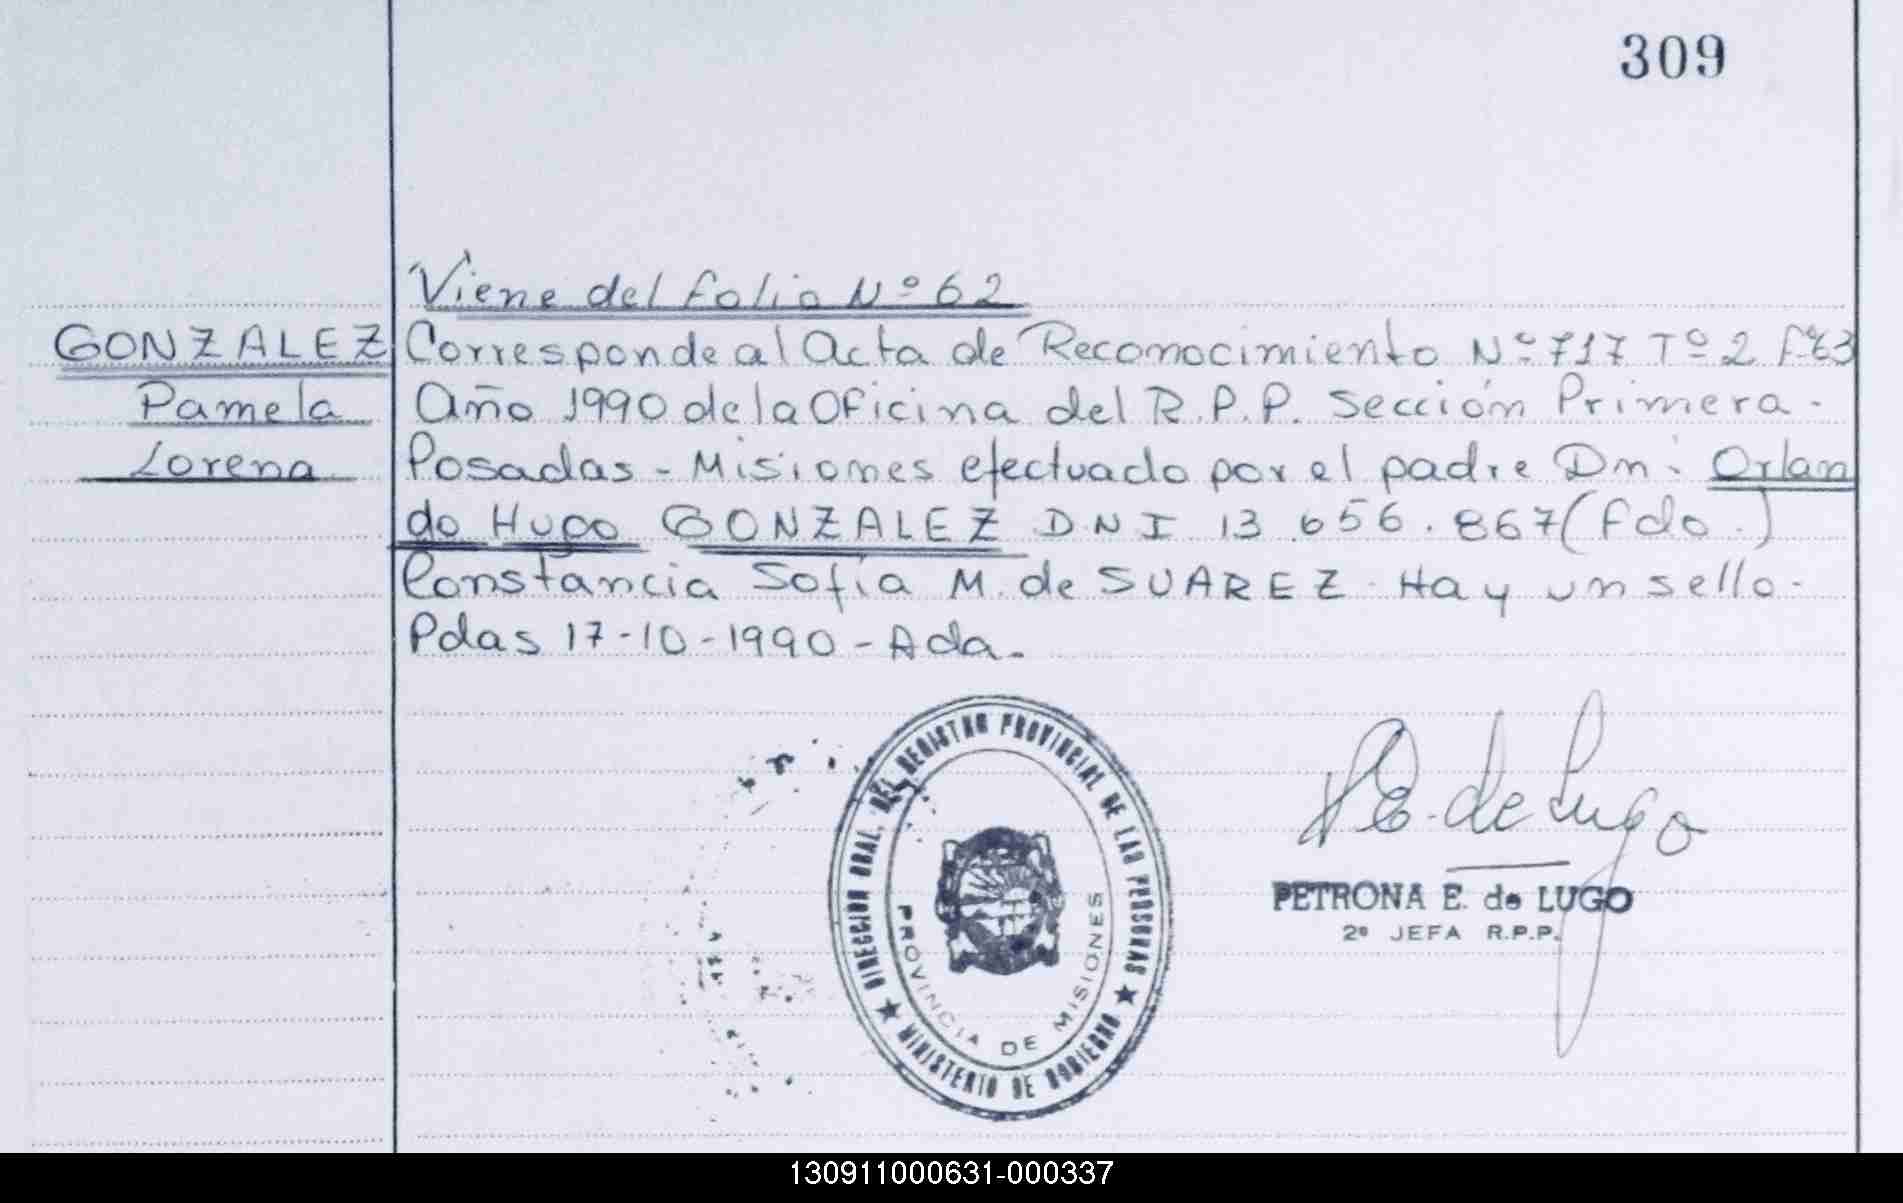 309
Viene del folio Nº 62
GONZALEZ Corresponde al Acta de Reconocimiento Nº 717 Tº 2
Pamela Año 1990 de la Oficina del R.P.P. Sección Primera-
Lorena Posadas - Misiones efectuado por el padre Dn: Orlan
do Hugo GONZALEZ DNI 13.656.867 (fdo.)
Constancia Sofía M. de SUAREZ. Hay un sello-
Pdas 17-10-1990 - Ada.
DIRECCION GRAL. DEL REGISTRO PROVINCIAL DE LAS PERSONAS
PROVINCIA DE MISIONES
MINISTERIO DE GOBIERNO
PE. de Lugo
PETRONA E. de LUGO
2º JEFA R.P.P.
130911000631-000337